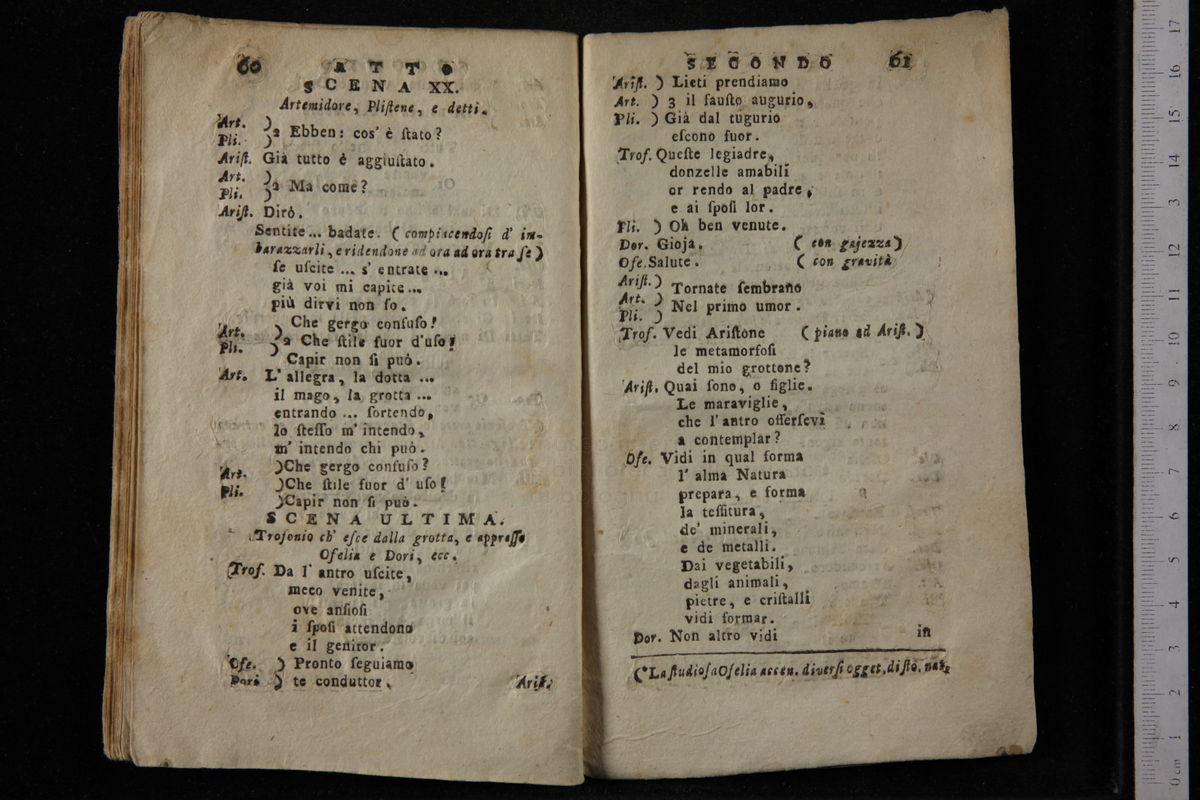 60 ATTO
SCENA XX.
Artemidore, Pliſtene, e detti.
Art. )
Pli. ) 2 Ebben: cos' è ſtato?
Ariſt. Già tutto è aggiuſtato.
Art. )
Pli. ) 2 Ma come?
Ariſt. Dirò.
Sentite... badate. ( compiacendoſi d' im-
barazzarli, e ridendone ad ora ad ora tra ſe )
ſe uſcite ... s' entrate ...
già voi mi capite...
più dirvi non ſo.
Art. ) Che gergo confuſo!
Pli. ) 2 Che ſtile fuor d'uſo!
Capir non ſi può.
Art. L' allegra, la dotta ...
il mago, la grotta ...
entrando ... ſortendo,
Io ſteſſo m' intendo,
m' intendo chi può.
Art. )Che gergo confuſo?
Pli. )Che ſtile fuor d' uſo!
)Capir non ſi può.
SCENA ULTIMA.
Trofonio ch' eſce dalla grotta, e appreſſo
Ofelia e Dori, ecc.
Trof. Da l' antro uſcite,
meco venite,
ove anſioſi
i ſpoſi attendono
e il genitor.
Ofe. ) Pronto ſeguiamo
Dori ) te conduttor.
Ariſt.
SECONDO 61
Ariſt. ) Lieti prendiamo
Art. ) 3 il fauſto augurio,
Pli. ) Già dal tugurio
eſcono fuor.
Trof. Queſte legiadre,
donzelle amabili
or rendo al padre,
e ai ſpoſi lor.
Pli. ) Oh ben venute.
Dor. Gioja. ( con gajezza )
Ofe. Salute. ( con gravità
Ariſt. ) Tornate ſembrano
Art. )
Pli. ) Nel primo umor.
Trof. Vedi Ariſtone ( piano ad Ariſt. )
le metamorfoſi
del mio grottone?
Ariſt. Quai ſono, o figlie.
Le maraviglie,
che l' antro offerſevi
a contemplar?
Ofe. Vidi in qual forma
l' alma Natura
prepara, e forma
la teſſitura,
de' minerali,
e de metalli.
Dai vegetabili,
dagli animali,
pietre, e criſtalli
vidi formar.
Dor. Non altro vidi
in
(*La ſtudioſa Ofelia accen. diverſi ogget. di ſto. nat.